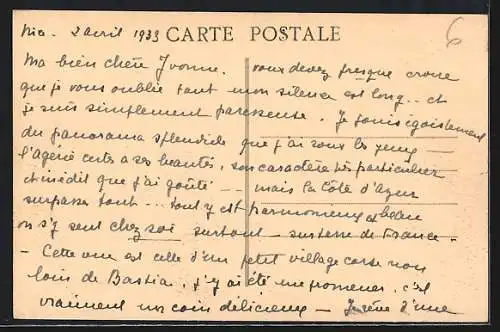 Nice. 2 avril 1933 CARTE POSTALE 6
Ma bien chère Yvonne. vous devez presque croire
que je vous oublie tant mon silence est long.. et
je suis simplement paresseuse. Je jouis égoïstement
du panorama splendide que j'ai sous les yeux —
l'Algérie certes a ses beautés, son caractère très particulier
et inédit que j'ai goûté -- mais la Côte d'Azur
surpasse tout -- tout y est harmonieux et beau
on s'y sent chez soi surtout — sur terre de France -
- Cette vue est celle d'un petit village corse non
loin de Bastia, j'y ai été me promener, c'est
vraiment un coin délicieux — Je rêve d'une